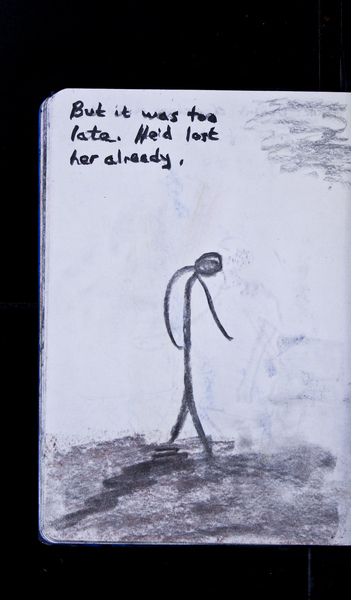 But it was too
late. He'd lost
her already.